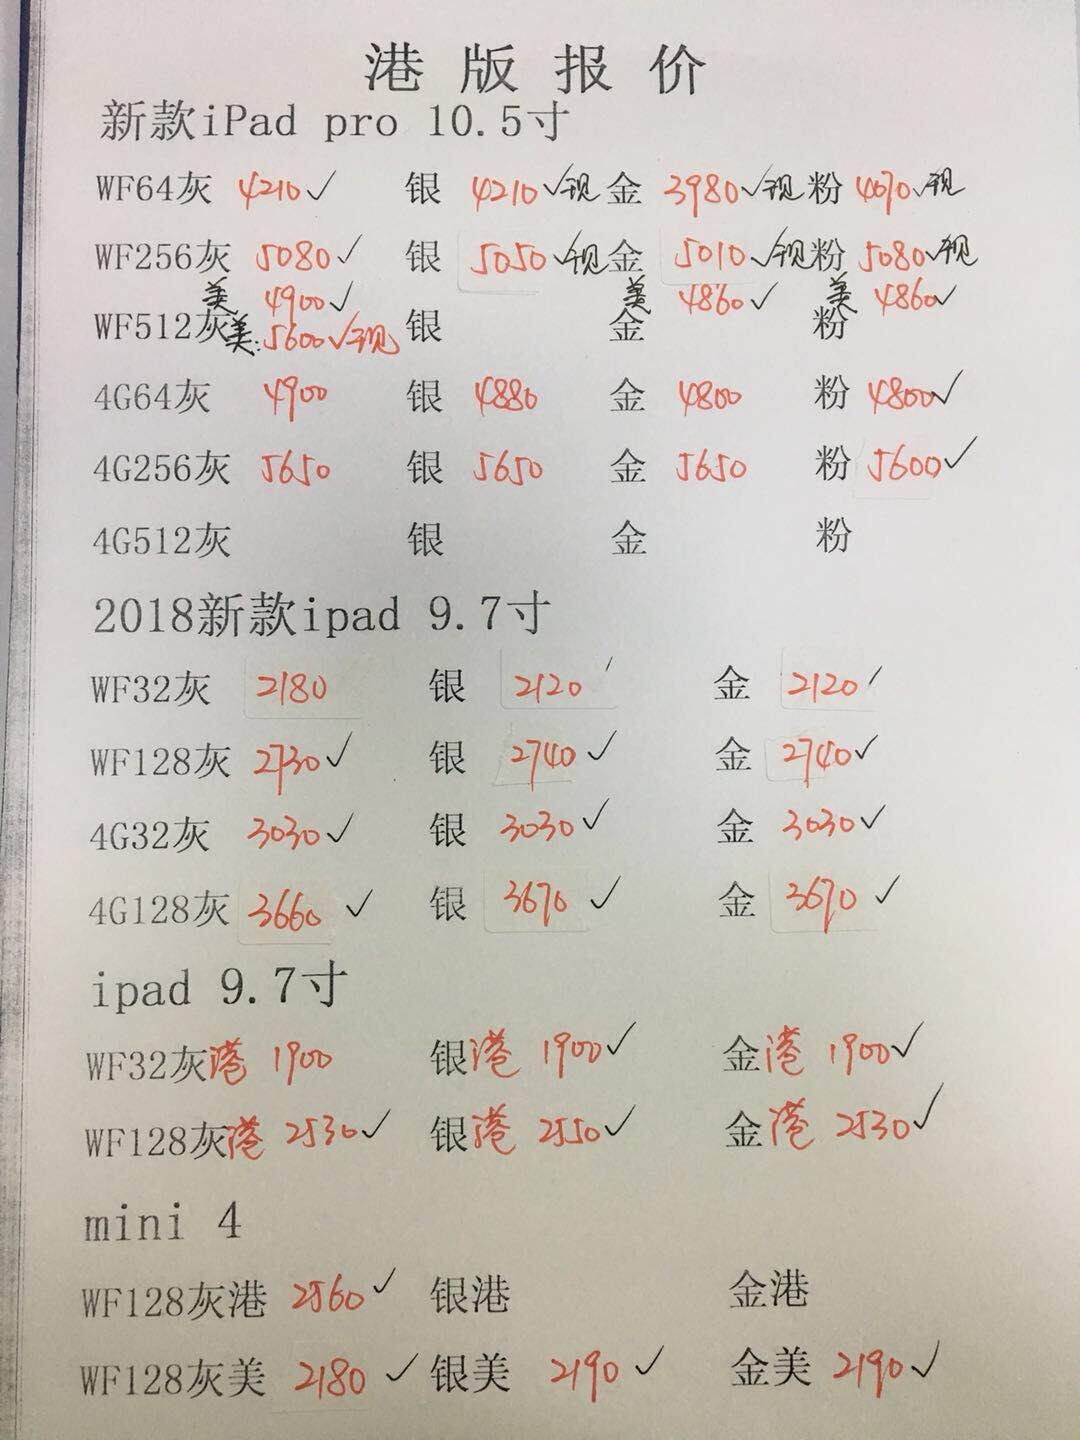 港版报价
新款iPad pro 10.5寸
WF64灰 4210✓ 银 4210✓现 金 3980✓现 粉 4070✓现
WF256灰 5080✓ 银 5050✓现 金 5010✓现 粉 5080✓现
美 4900✓ 美 4860✓ 美 4860✓
WF512灰 美:5600✓现 银 金 粉
4G64灰 4900 银 4880 金 4800 粉 4800✓
4G256灰 5650 银 5650 金 5650 粉 5600✓
4G512灰 银 金 粉
2018新款ipad 9.7寸
WF32灰 2180 银 2120 金 2120
WF128灰 2730✓ 银 2740✓ 金 2740✓
4G32灰 3030✓ 银 3030✓ 金 3030✓
4G128灰 3660✓ 银 3670✓ 金 3670✓
ipad 9.7寸
WF32灰港 1900 银港 1900✓ 金港 1900✓
WF128灰港 2530✓ 银港 2550✓ 金港 2530✓
mini 4
WF128灰港 2560✓ 银港 金港
WF128灰美 2180✓ 银美 2190✓ 金美 2190✓